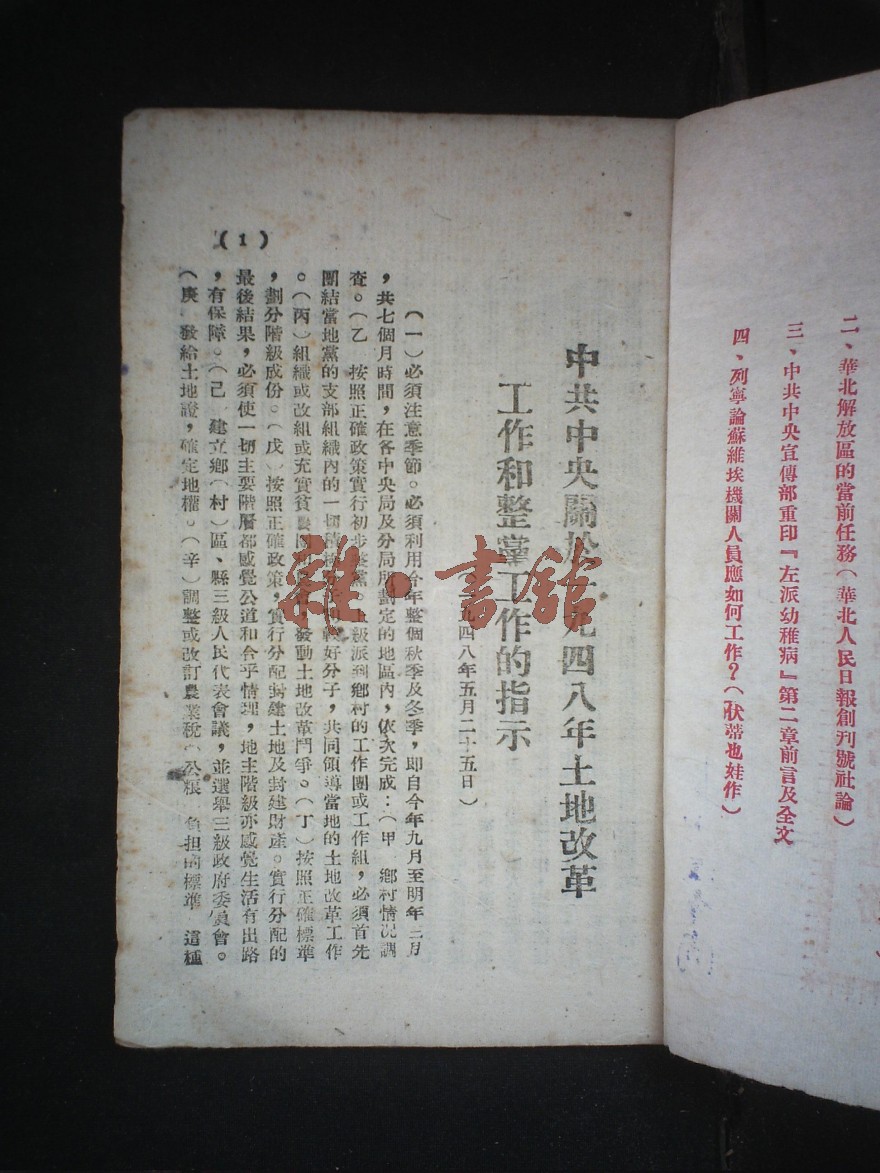 二、華北解放區的當前任務(華北人民日報創刊號社論)
三、中共中央宣傳部重印『左派幼稚病』第二章前言及全文
四、列寧論蘇維埃機關人員應如何工作?(狀蒂也娃作)
中共中央關於一九四八年土地改革
工作和整黨工作的指示
九四八年五月二十五日)
(一)必須注意季節。必須利用今年整個秋季及冬季,即自今年九月至明年三月
,共七個月時間,在各中央局及分局所劃定的地區內,依次完成:(甲 鄉村情況調
查。(乙 按照正確政策實行初步整黨 上級派到鄉村的工作團或工作組,必須首先
團結當地黨的支部組織內的一切積極 好分子,共同領導當地的土地改革工作
。(丙)組織或改組或充實貧農團 發動土地改革鬥爭。(丁)按照正確標準
,劃分階級成份。(戊)按照正確政策,實行分配封建土地及封建財產。實行分配的
最後結果,必須使一切主要階層都感覺公道和合乎情理,地主階級亦感覺生活有出路
,有保障。(己 建立鄉(村)區、縣三級人民代表會議,並選舉三級政府委員會。
(庚 發給土地證,確定地權。(辛)調整或改訂農業稅(公粮 負担的標準 這種
(1)
雜·書舘